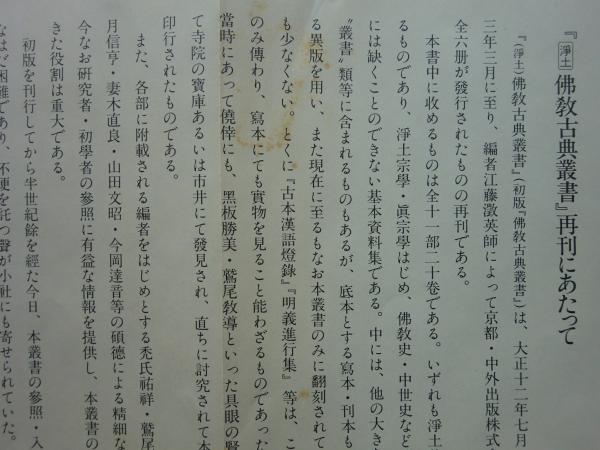 『浄土佛敎古典叢書』再刊にあたって
『(淨土)佛敎古典叢書』(初版『佛敎古典叢書』)は、大正十二年七月
三年三月に至り、編者江藤澂英師によって京都・中外出版株式
全六册が發行されたものの再刊である。
本書中に收めるものは全十一部二十卷である。いずれも淨土
るものであり、淨土宗學・眞宗學はじめ、佛敎史・中世史など
には缺くことのできない基本資料集である。中には、他の大き
〝叢書〟類等に含まれるものもあるが、底本とする寫本・刊本も
る異版を用い、また現在に至るもなお本叢書のみに翻刻されて
も少なくない。とくに『古本漢語燈錄』『明義進行集』等は、こ
のみ傳わり、寫本にても實物を見ること能わざるものであった
當時にあって僥倖にも、黑板勝美・鷲尾敎導といった具眼の賢
て寺院の寶庫あるいは市井にて發見され、直ちに討究されて本
印行されたものである。
また、各部に附載される編者をはじめとする禿氏祐祥・鷲尾
月信亨・妻木直良・山田文昭・今岡達音等の碩德による精細な
今なお硏究者・初學者の參照に有益な情報を提供し、本叢書の
きた役割は重大である。
初版を刊行してから半世紀餘を經た今日、本叢書の參照・入
なはだ困難であり、不便を託つ聲が小社にも寄せられていた。